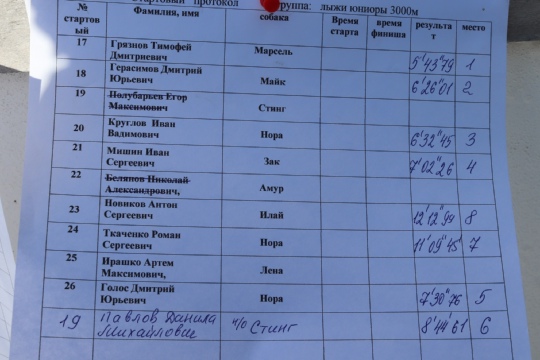 Стартовый протокол группа: лыжи юниоры 3000м
№ стартов ый Фамилия, имя собака Время старта время финиша результа т место
17 Грязнов Тимофей Дмитриевич Марсель 5'43"79 1
18 Герасимов Дмитрий Юрьевич Майк 6'26"01 2
19 Полубарьев Егор Максимович Стинг
20 Круглов Иван Вадимович Нора 6'32"45 3
21 Мишин Иван Сергеевич Зак 7'02"26 4
22 Белянов Николай Александрович, Амур
23 Новиков Антон Сергеевич Илай 12'12"94 8
24 Ткаченко Роман Сергеевич Нора 11'09"45 7
25 Ирашко Артем Максимович, Лена
26 Голос Дмитрий Юрьевич Нора 7'30"76 5
19 Павлов Данила Михайлович ч/о Стинг 8'44"61 6